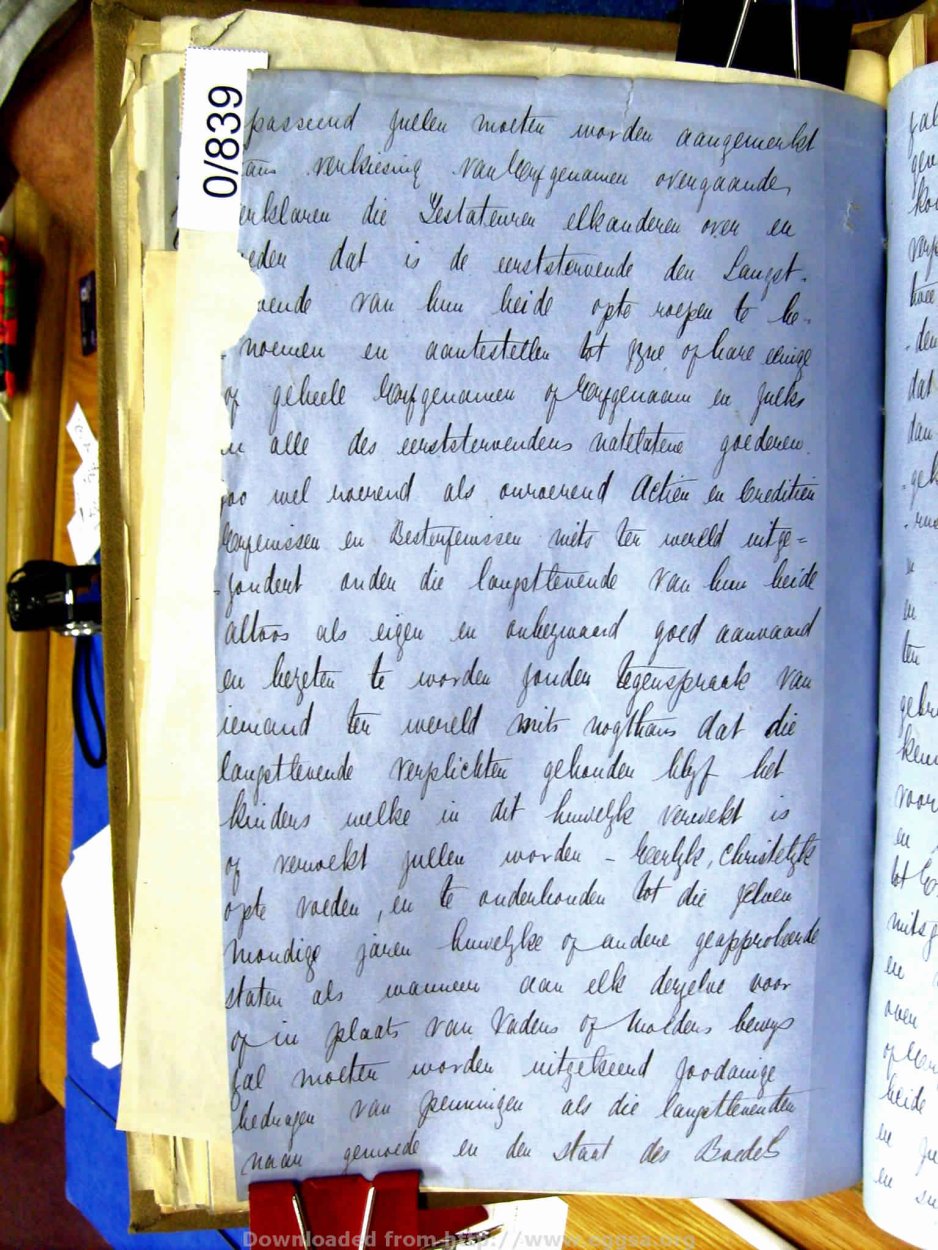 0/839
passeerd zullen moeten worden aangemerkt
verkiesing van Erfgenamen overgaande,
verklaren die Testateuren elkanderen over en
dat is de eerststervende den Langst-
vende van hun beide opte roepen te be-
noemen en aantestellen tot zyne of hare eenige
of geheele Erfgenamen of Erfgenaam en zulks
in alle des eerststervendens natelatene goederen
zoo wel roerend als onroerend Actien en Creditien
Erfenissen en Besterfenissen niets ter wereld uitge=
zondert om den die langstlevende van hun beide
altoos als eigen en onbezwaard goed aanvaard
en bezeten te worden zonder tegenspraak van
iemand ter wereld mits nogthans dat die
langstlevende verplichten gehouden blyf het
kinders welke in dit huwelyk verwekt is
of verwekt zullen worden – Eerlyk, Christelyk
opte voeden, en te onderhouden tot die zelven
mondige jaren huwelyke of andere geapprobeerde
staten als wanneer aan elk derzelve voor
of in plaats van Vaders of Moeders bewys
zal moeten worden uitgekeerd zoodanige
bedragen van penningen als die langstlevenden
naar gemoede en den staat des Boedels
Downloaded from http://www.eggsa.org